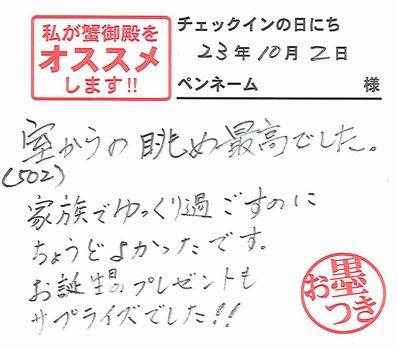 私が蟹御殿を
オススメ
します!!
チェックインの日にち
23年10月2日
ペンネーム 様
室からの眺め最高でした。
(502)
家族でゆっくり過ごすのに
ちょうどよかったです。
お誕生日のプレゼントも
サプライズでした!!
お墨つき